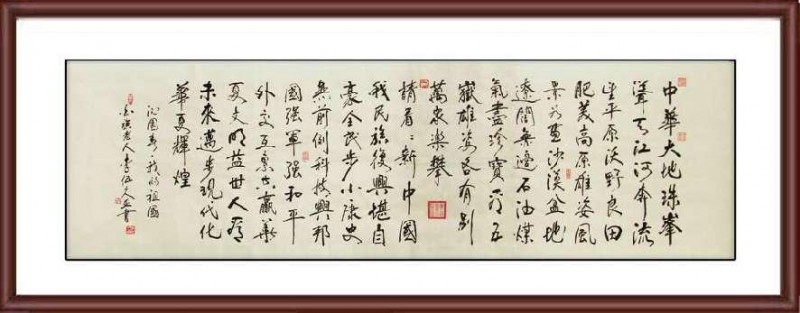 中華大地珠峯
聳天江河奔流
平原沃野良田
肥美高原雄姿風
景沙漠盆地
遼闊無邊石油煤
氣盡珍寶五
嶽雄姿各有别
萬家樂攀
請看新中國
我民族復興堪自
豪全民步小康史
無前例科技興邦
國强軍强和平
外交互惠共赢華
夏文明益世人
未來邁步現代化
華夏輝煌
沁園春·我的祖國
老人李書